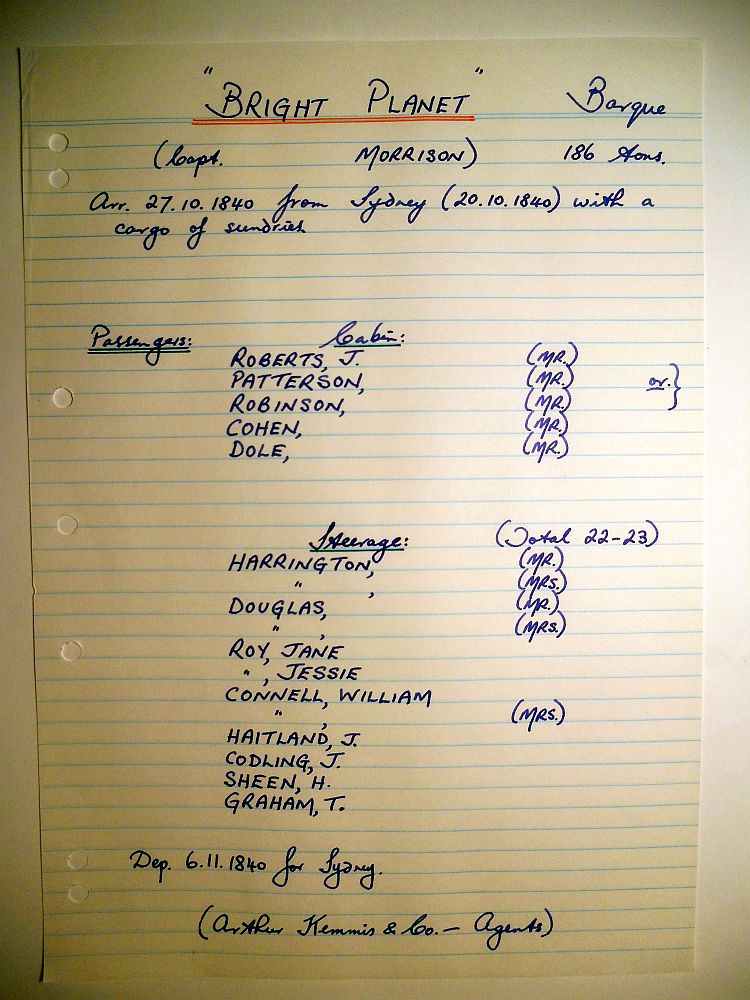 "BRIGHT PLANET" Barque
(Capt. MORRISON) 186 tons.
Arr. 27.10.1840 from Sydney (20.10.1840) with a
cargo of sundries.
Passengers: Cabin:
ROBERTS, J. (MR.)
PATTERSON, (MR.) or. }
ROBINSON, (MR.)
COHEN, (MR.)
DOLE, (MR.)
Steerage: (Total 22-23)
HARRINGTON, (MR.)
" , (MRS.)
DOUGLAS, (MR.)
" , (MRS.)
ROY, JANE
" , JESSIE
CONNELL, WILLIAM
" , (MRS.)
HAITLAND, J.
CODLING, J.
SHEEN, H.
GRAHAM, T.
Dep. 6.11.1840 for Sydney.
(Arthur Kemmis & Co. — Agents)